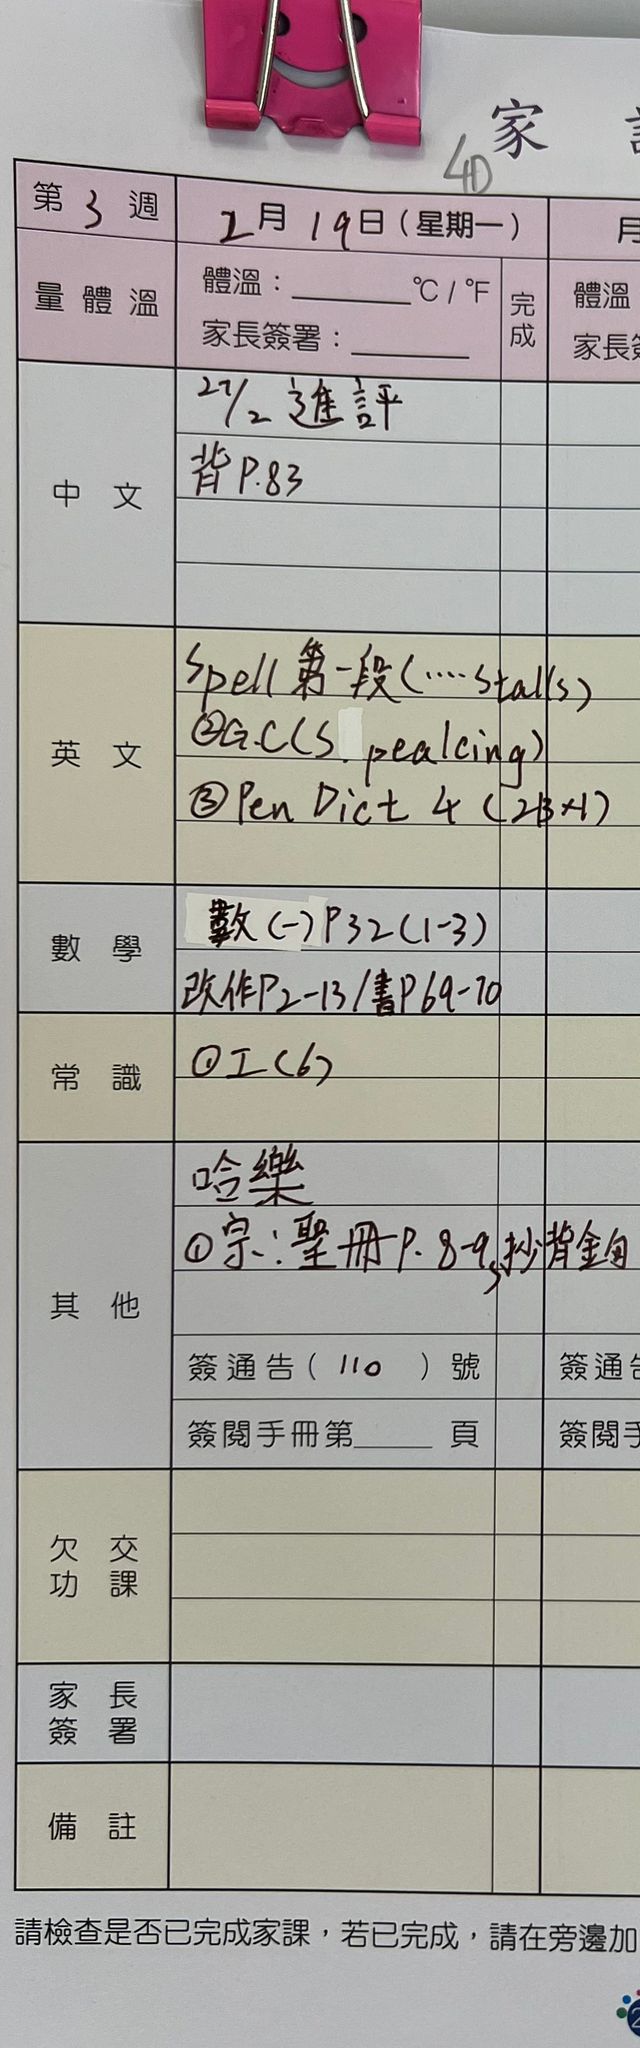 家
4D
第 3 週
2月19日(星期一)
月
量體溫
體溫：______°C / °F
家長簽署：______
完成
體溫
家長簽
中文
27/2 進評
背P.83
英文
Spell 第一段(....stalls)
②G.C(S. pealcing)
③Pen Dict 4 (2B×1)
數學
數(一)P32(1-3)
改作P2-13/書P69-70
常識
①工(6)
其他
哈樂
①宗:聖冊P.8-9,抄背金句
簽通告(110)號
簽通告
簽閱手冊第____頁
簽閱手
欠交功課
家長簽署
備註
請檢查是否已完成家課，若已完成，請在旁邊加
2